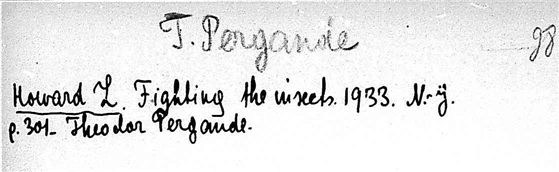 T. Pergande
98
Howard L. Fighting the insects. 1933. N.-y.
p. 301- Theodor Pergande.